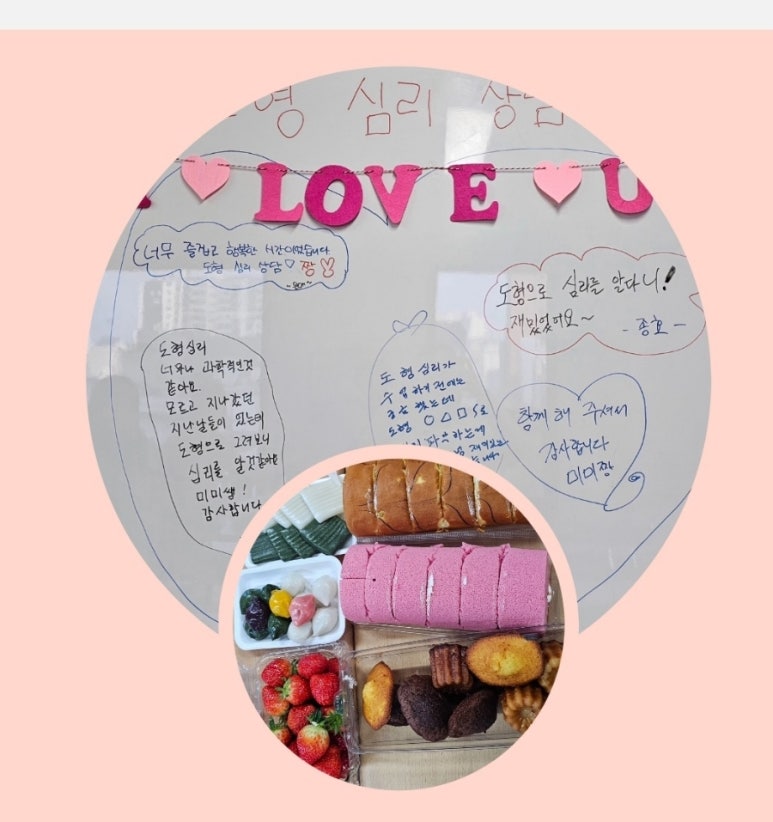 도형 심리 상담
LOVE U
너무 즐겁고 행복한 시간이었습니다
도형 심리 상담♡ 짱
도형으로 심리를 알다니!
재밌었어요~ -종효-
도형심리
너무나 과학적인것
같아요.
모르고 지나갔던
지난날들이 있는데
도형으로 그려보니
심리를 알것같아요
미미쌤!
감사합니다
도형 심리가
수업하기 전에는
궁금했는데
도형 ○△□S로
함께 해 주셔서
감사합니다
미미짱